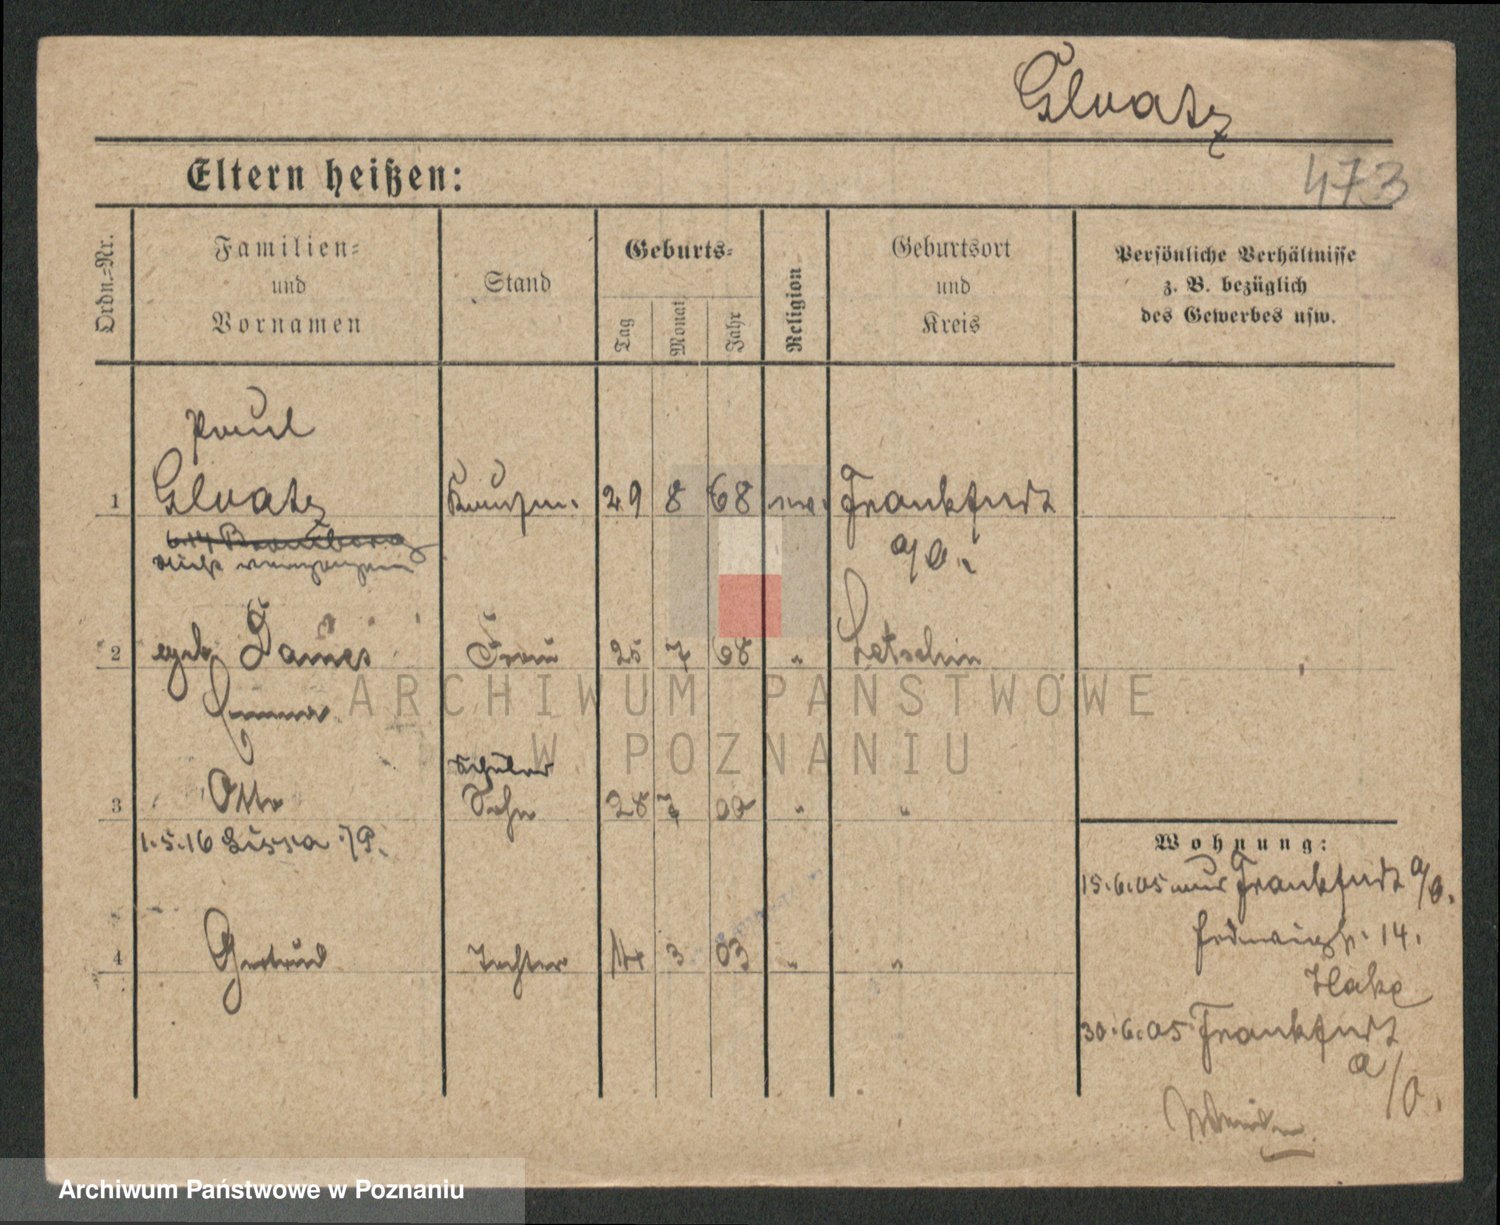 Glvatz
473
Eltern heißen:
Ordn.-Nr.
Familien-
und
Vornamen
Stand
Geburts-
Tag
Monat
Jahr
Religion
Geburtsort
und
Kreis
Persönliche Verhältnisse
z. B. bezüglich
des Gewerbes usw.
Paul
1 Glvatz Kaufm. 29 8 68 Frankfurt
a/O.
6.14 Bromberg
nicht
2 geb. Dames Frau 25 7 68 " Letschin
Emma
Schüler
3 Otto Sohn 28 7 00 " "
1.5.16 Lissa i/P.
4 Gertrud Tochter 14 3 03 " "
Wohnung:
15.6.05 aus Frankfurt a/O.
14.
Hake
30.6.05 Frankfurt
a/O.
ARCHIWUM PAŃSTWOWE
W POZNANIU
Archiwum Państwowe w Poznaniu